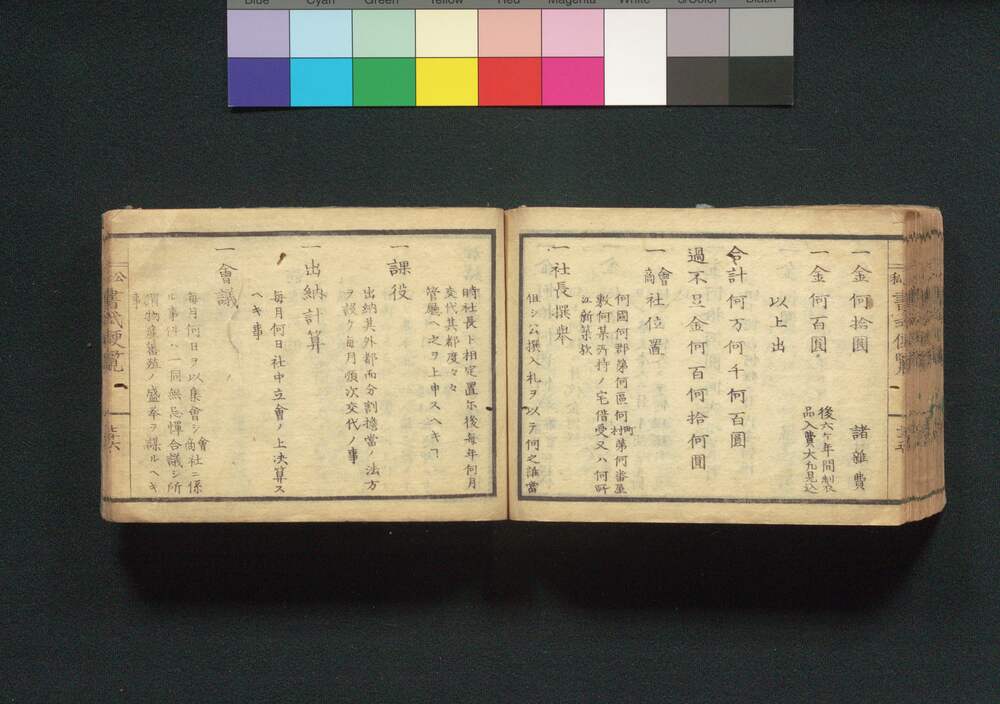 Blue Cyan Green Yellow Red Magenta White 3/Color Black
一金何拾圓　諸雜費
一金何百圓　後六ケ年間制衣
品入費大凡見込
以上出
合計何万何千何百圓
過不足金何百何拾何圓
一會商社位置
何國何郡第何區何町村第何番屋
敷何某所持ノ宅借受又ハ何所
江新築歟
一社長撰擧
但シ公撰入札ヲ以テ何之誰當
時社長ト相定置尓後每年何月
交代其都度々々
管廳ヘ之ヲ上申スヘキヿ
一課役
出納其外都而分割擔當ノ法方
ヲ設ケ每月順次交代ノ事
一出納計算
每月何日社中立會ノ上決算ス
ヘキ事
一會議
每月何日ヲ以集會シ會商社ニ係
ル事件ハ一同無忌憚合議シ所
謂物産蕃殖ノ盛擧ヲ謀ルヘキ
事
公
書式便覧
廿六